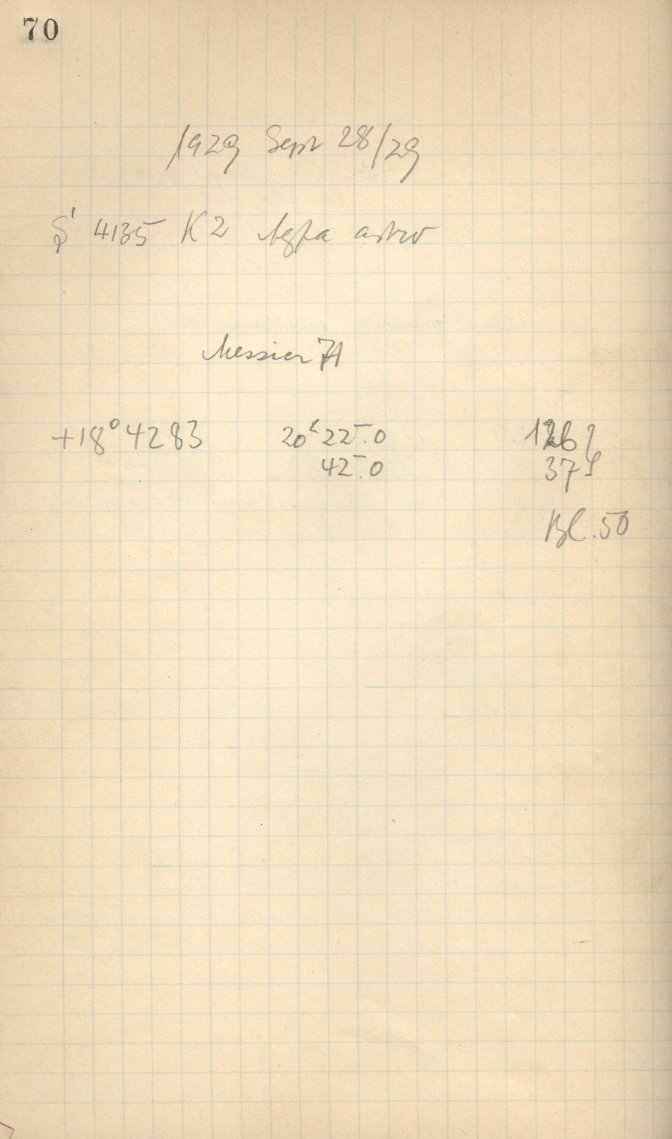 70
1929 Sept 28/29
4135 K2 Agfa astro
Messier 71
+18° 4283 20h 22m.0
42m.0 37
Bl. 50